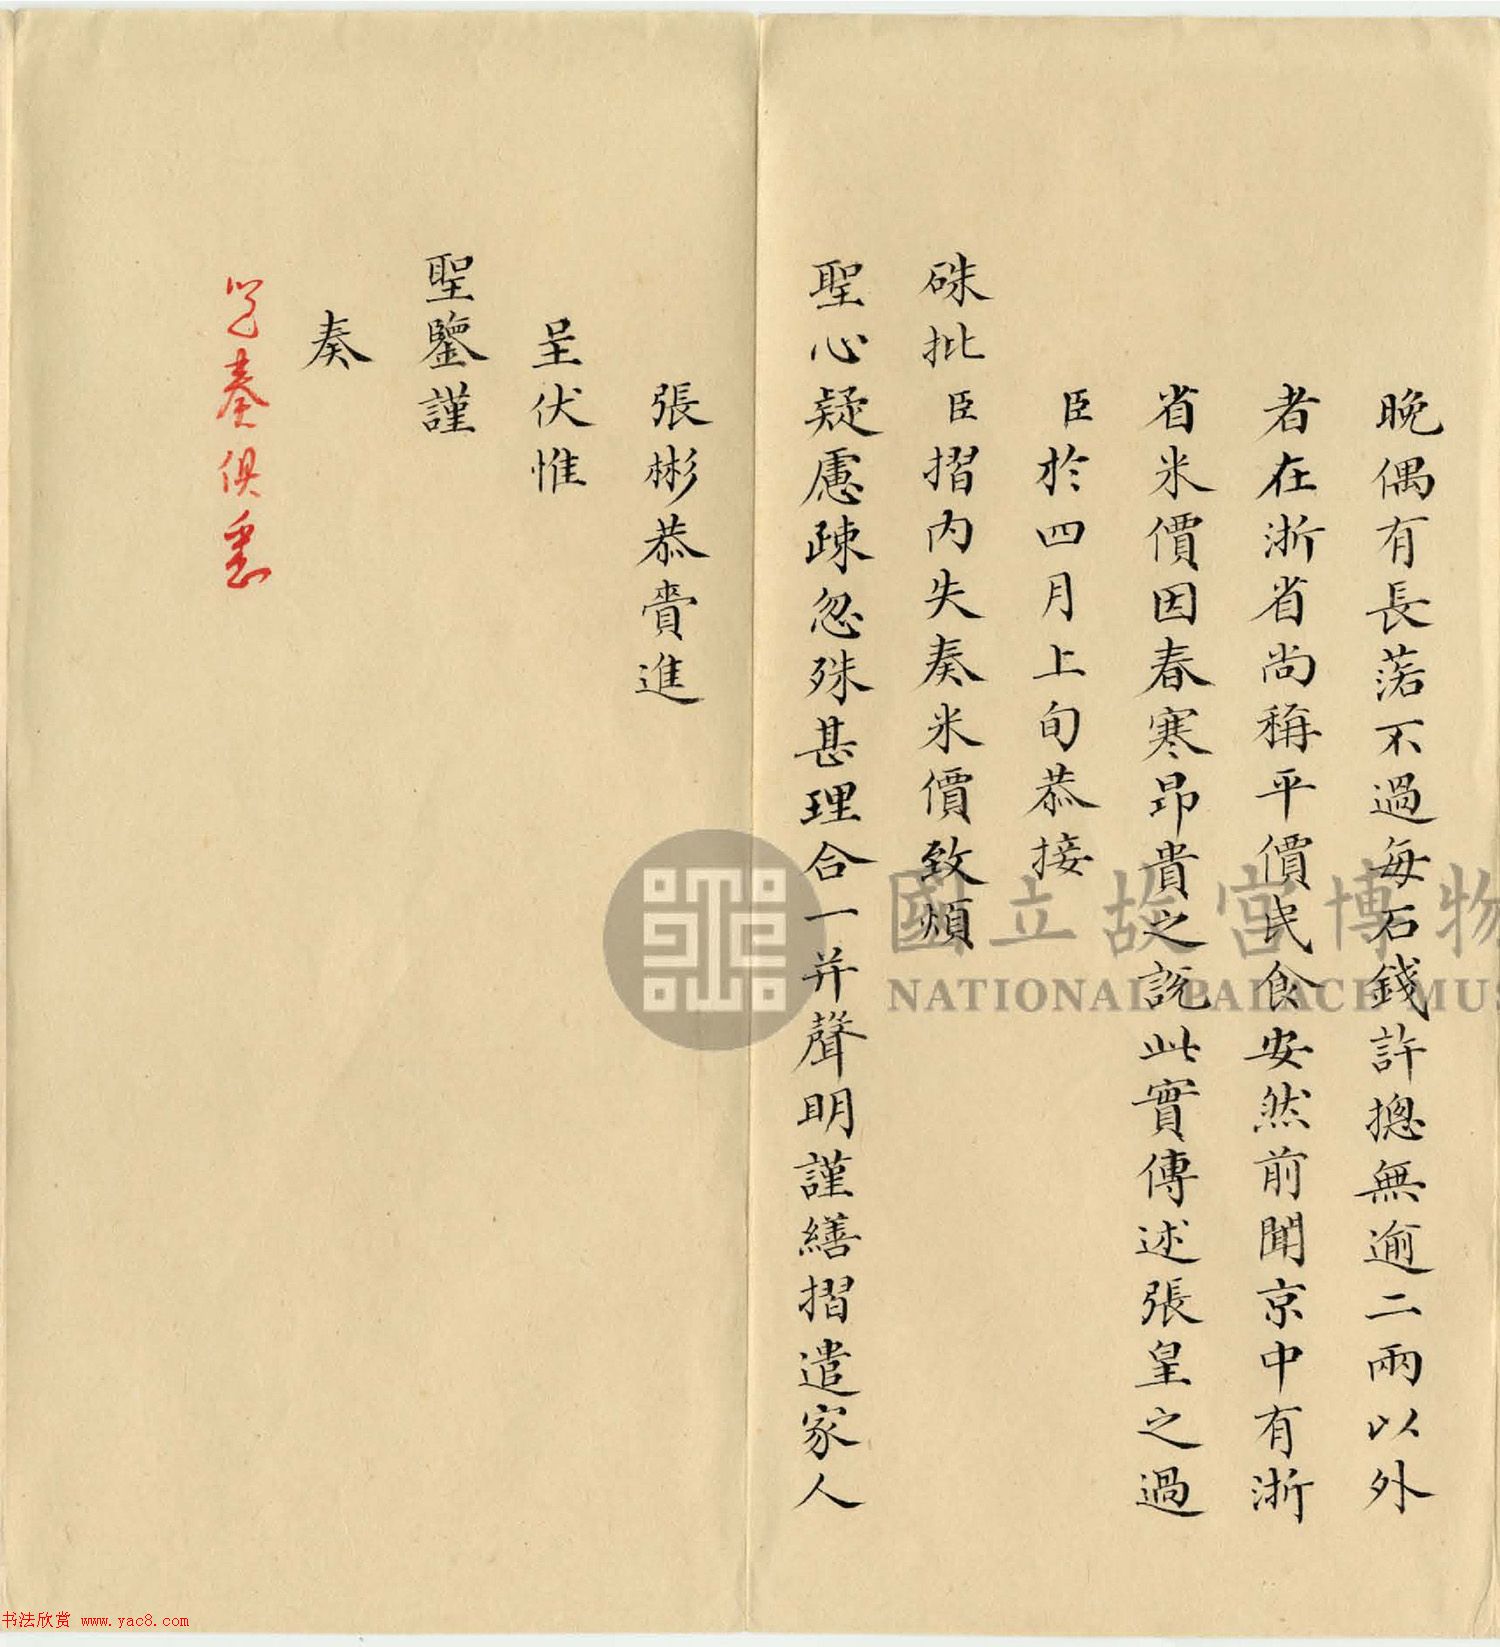 晚偶有長落不過每石錢許摠無逾二兩以外
者在浙省尚稱平價民食安然前聞京中有浙
省米價因春寒昂貴之說此實傳述張皇之過
臣於四月上旬恭接
硃批臣摺內失奏米價致煩
聖心疑慮疎忽殊甚理合一并聲明謹繕摺遣家人
張彬恭賫進
呈伏惟
聖鑒謹
奏
覽奏俱悉
國立故宮博物
NATIONAL PALACE MUS
书法欣赏 www.yac8.com